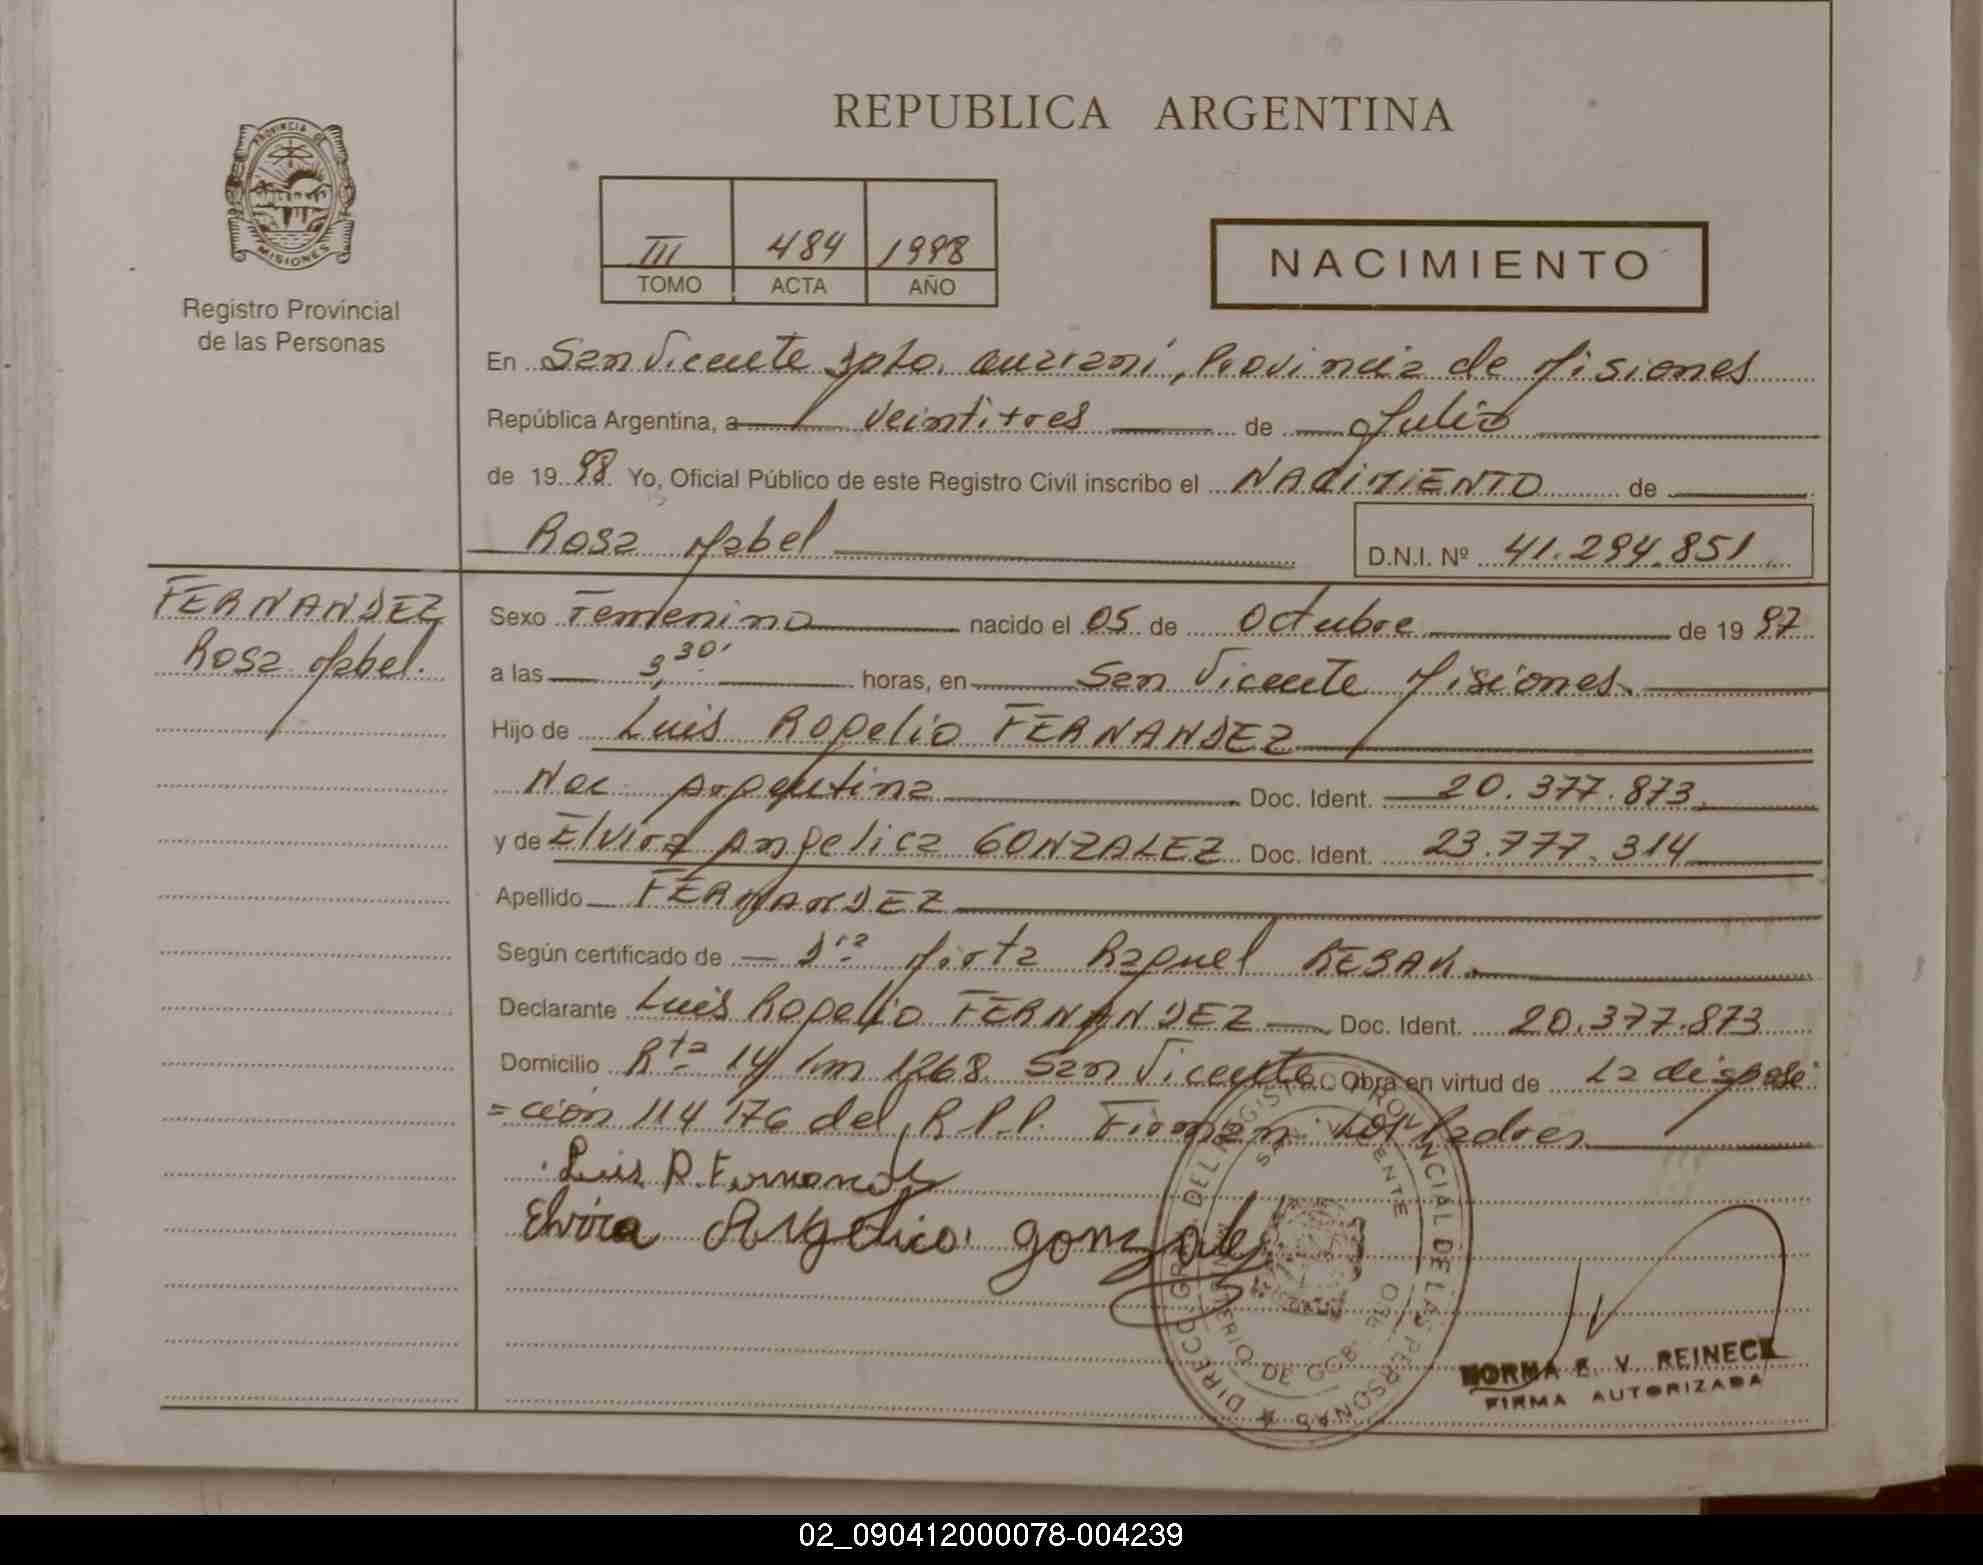 PROVINCIA DE
MISIONES
Registro Provincial
de las Personas
REPUBLICA ARGENTINA
III 484 1998
TOMO ACTA AÑO
NACIMIENTO
En San Vicente Dpto. Guaraní, Provincia de Misiones
República Argentina, a veintitres de Julio
de 1998 Yo, Oficial Público de este Registro Civil inscribo el NACIMIENTO de
Rosa Mabel
D.N.I. Nº 41.294.851
FERNANDEZ
Rosa Mabel.
Sexo Femenino nacido el 05 de Octubre de 1997
a las 3,30' horas, en San Vicente Misiones.
Hijo de Luis Rogelio FERNANDEZ
Nac Argentina Doc. Ident. 20.377.873
y de Elvira Angelica GONZALEZ Doc. Ident. 23.777.314
Apellido FERNANDEZ
Según certificado de Dra Mirta Raquel
Declarante Luis Rogelio FERNANDEZ Doc. Ident. 20.377.873
Domicilio Rta 14 Km 1268 San Vicente. Obra en virtud de La disposi
=ción 114/76 del R.P.P. Firman los Padres
Luis R. Fernandez
Elvira Angelica gonzalez
DIRECC. GRAL. DEL REGISTRO PROVINCIAL DE LAS PERSONAS
SAN VICENTE
MINISTERIO DE GOB.
NORMA E. V. REINECK
FIRMA AUTORIZADA
02_090412000078-004239